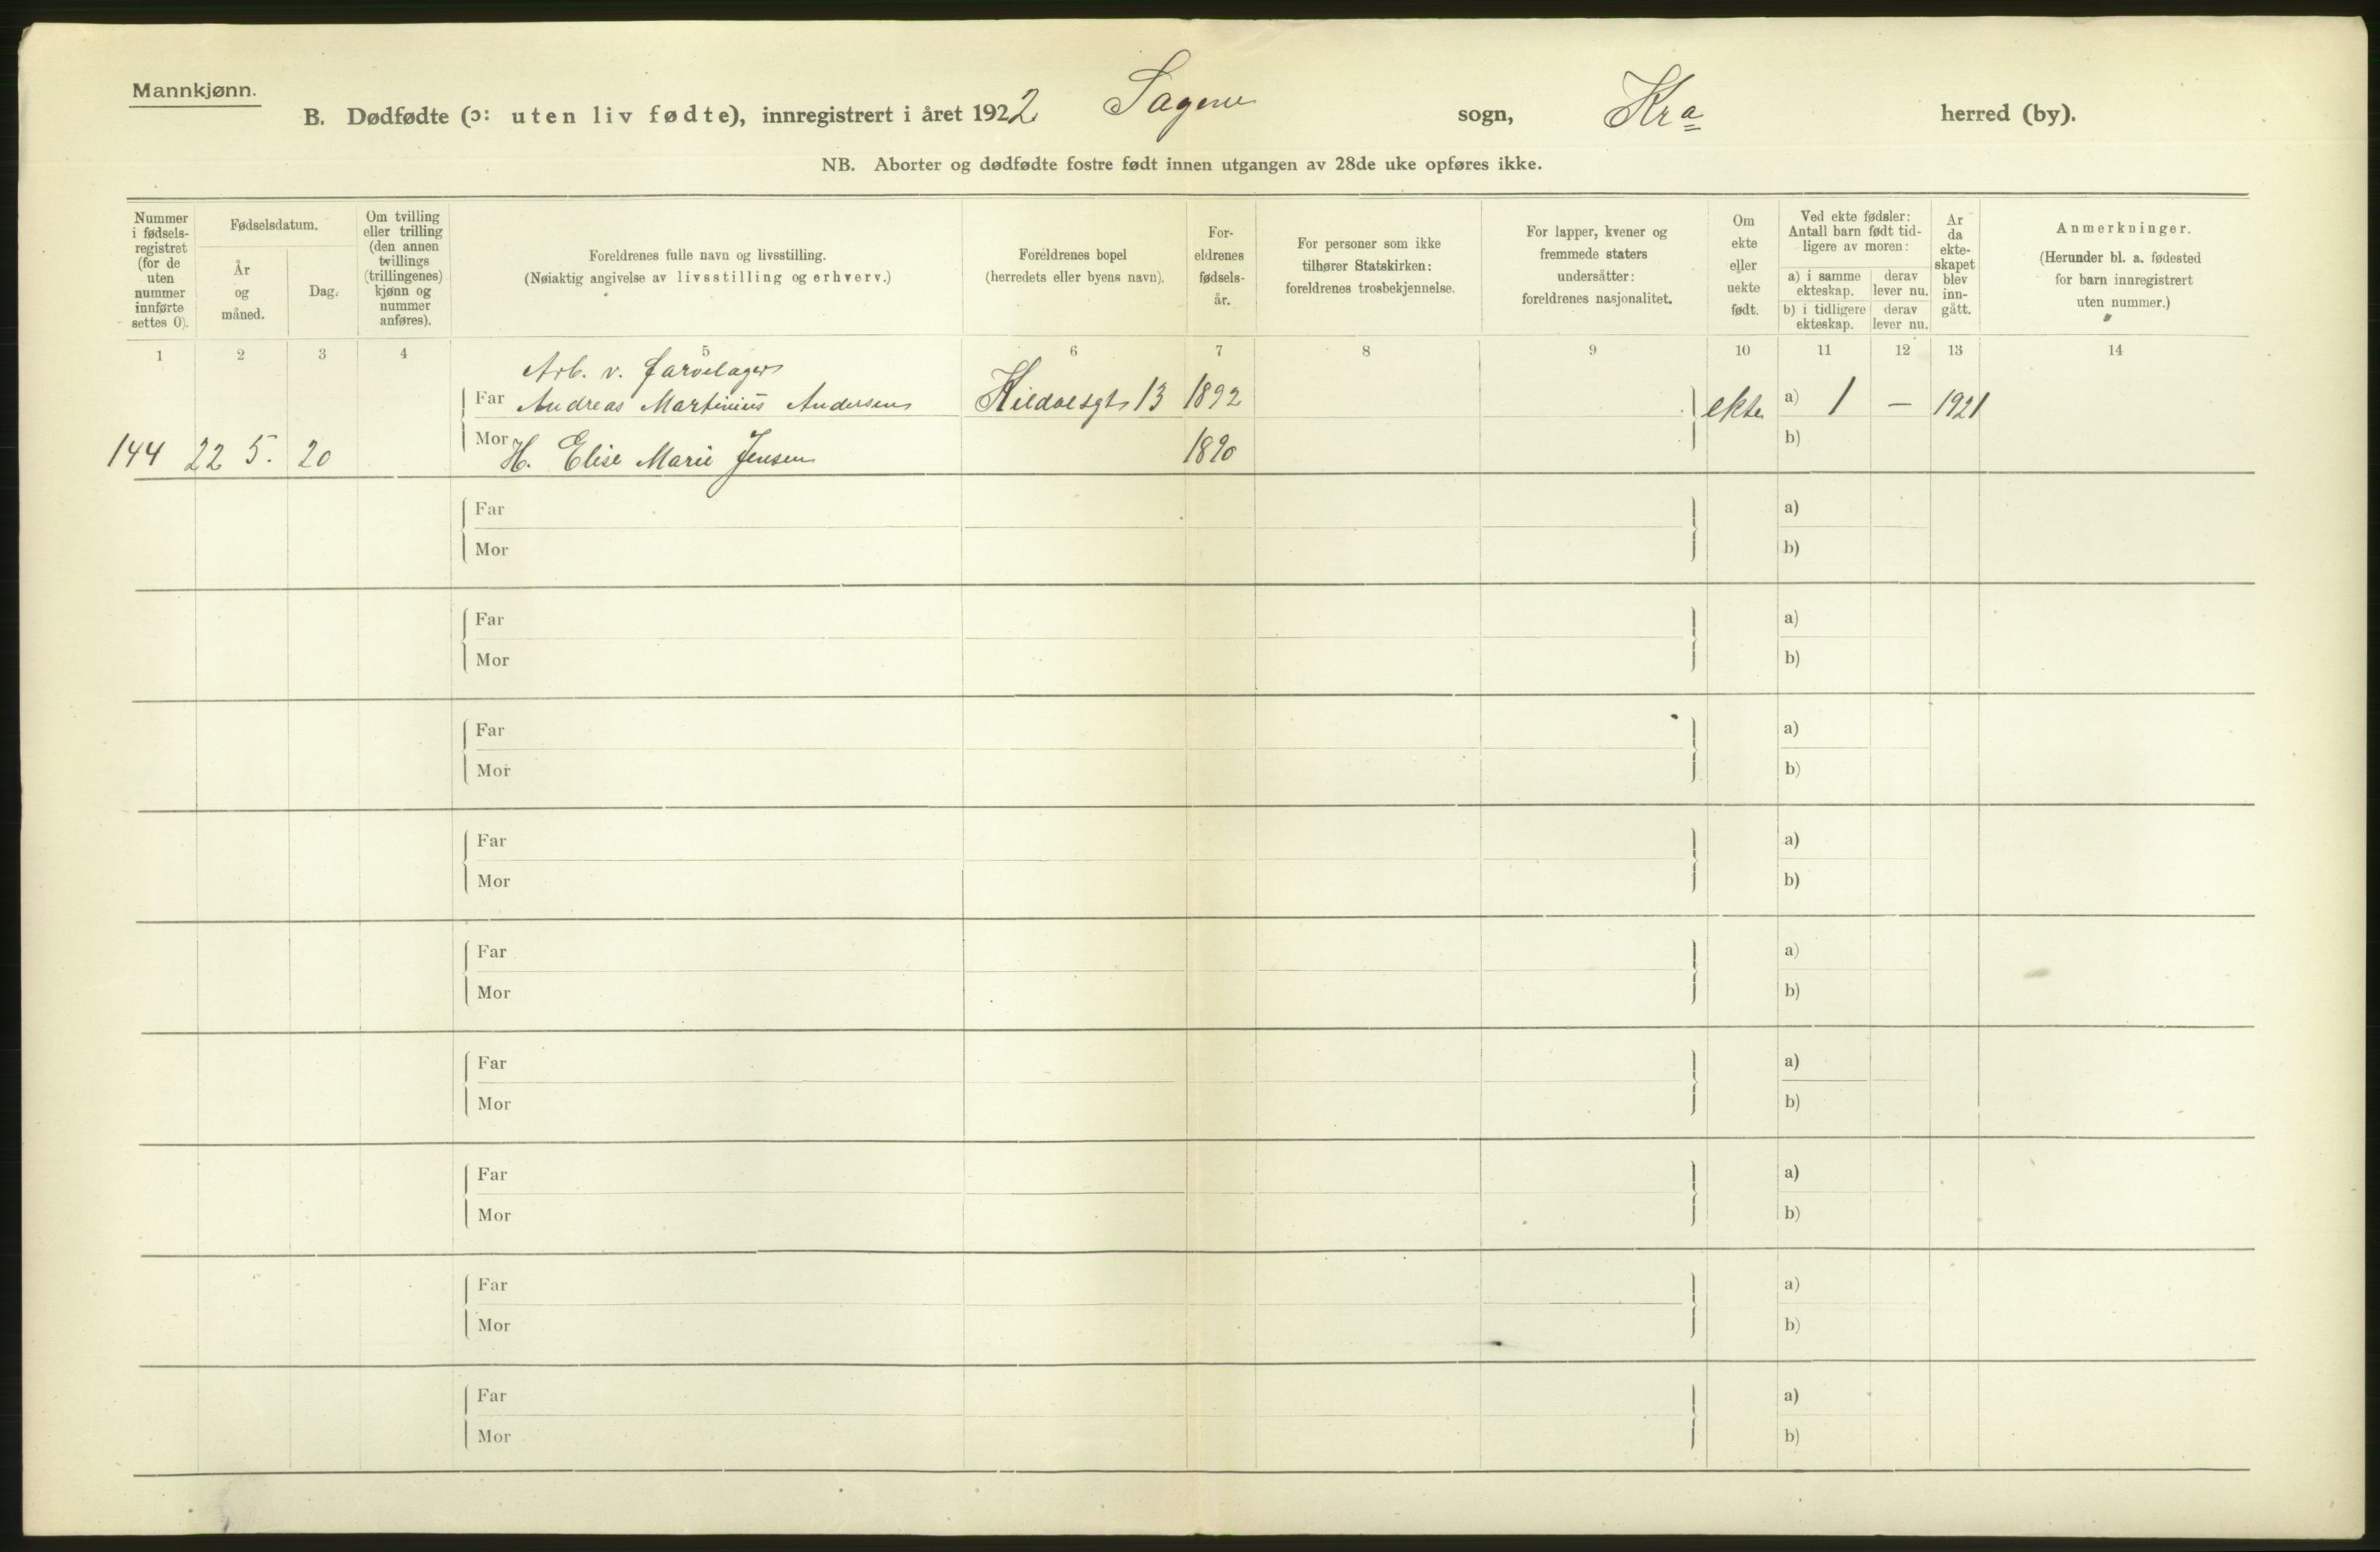 Mannkjønn.
B. Dødfødte (ɔ: uten liv fødte), innregistrert i året 1922 Sagene sogn, Kra herred (by).
NB. Aborter og dødfødte fostre født innen utgangen av 28de uke opføres ikke.
Nummer i fødsels-registret (for de uten nummer innførte settes 0).
Fødselsdatum.
År og måned.
Dag.
Om tvilling eller trilling (den annen tvillings (trillingenes) kjønn og nummer anføres).
Foreldrenes fulle navn og livsstilling.
(Nøiaktig angivelse av livsstilling og erhverv.)
Foreldrenes bopel
(herredets eller byens navn).
For-eldrenes fødsels-år.
For personer som ikke tilhører Statskirken: foreldrenes trosbekjennelse.
For lapper, kvener og fremmede staters undersåtter: foreldrenes nasjonalitet.
Om ekte eller uekte født.
Ved ekte fødsler: Antall barn født tid-ligere av moren:
a) i samme ekteskap.
derav lever nu.
b) i tidligere ekteskap.
derav lever nu.
År da ekte-skapet blev inn-gått.
Anmerkninger.
(Herunder bl. a. fødested for barn innregistrert uten nummer.)
1 2 3 4 5 6 7 8 9 10 11 12 13 14
Arb. v. farvelager
Far Andreas Martinius Andersen 13 1892 ekte a) 1 — 1921
144 22 5. 20 Mor H. Elise Marie Jensen 1890 b)
Far a)
Mor b)
Far a)
Mor b)
Far a)
Mor b)
Far a)
Mor b)
Far a)
Mor b)
Far a)
Mor b)
Far a)
Mor b)
Far a)
Mor b)
Far a)
Mor b)